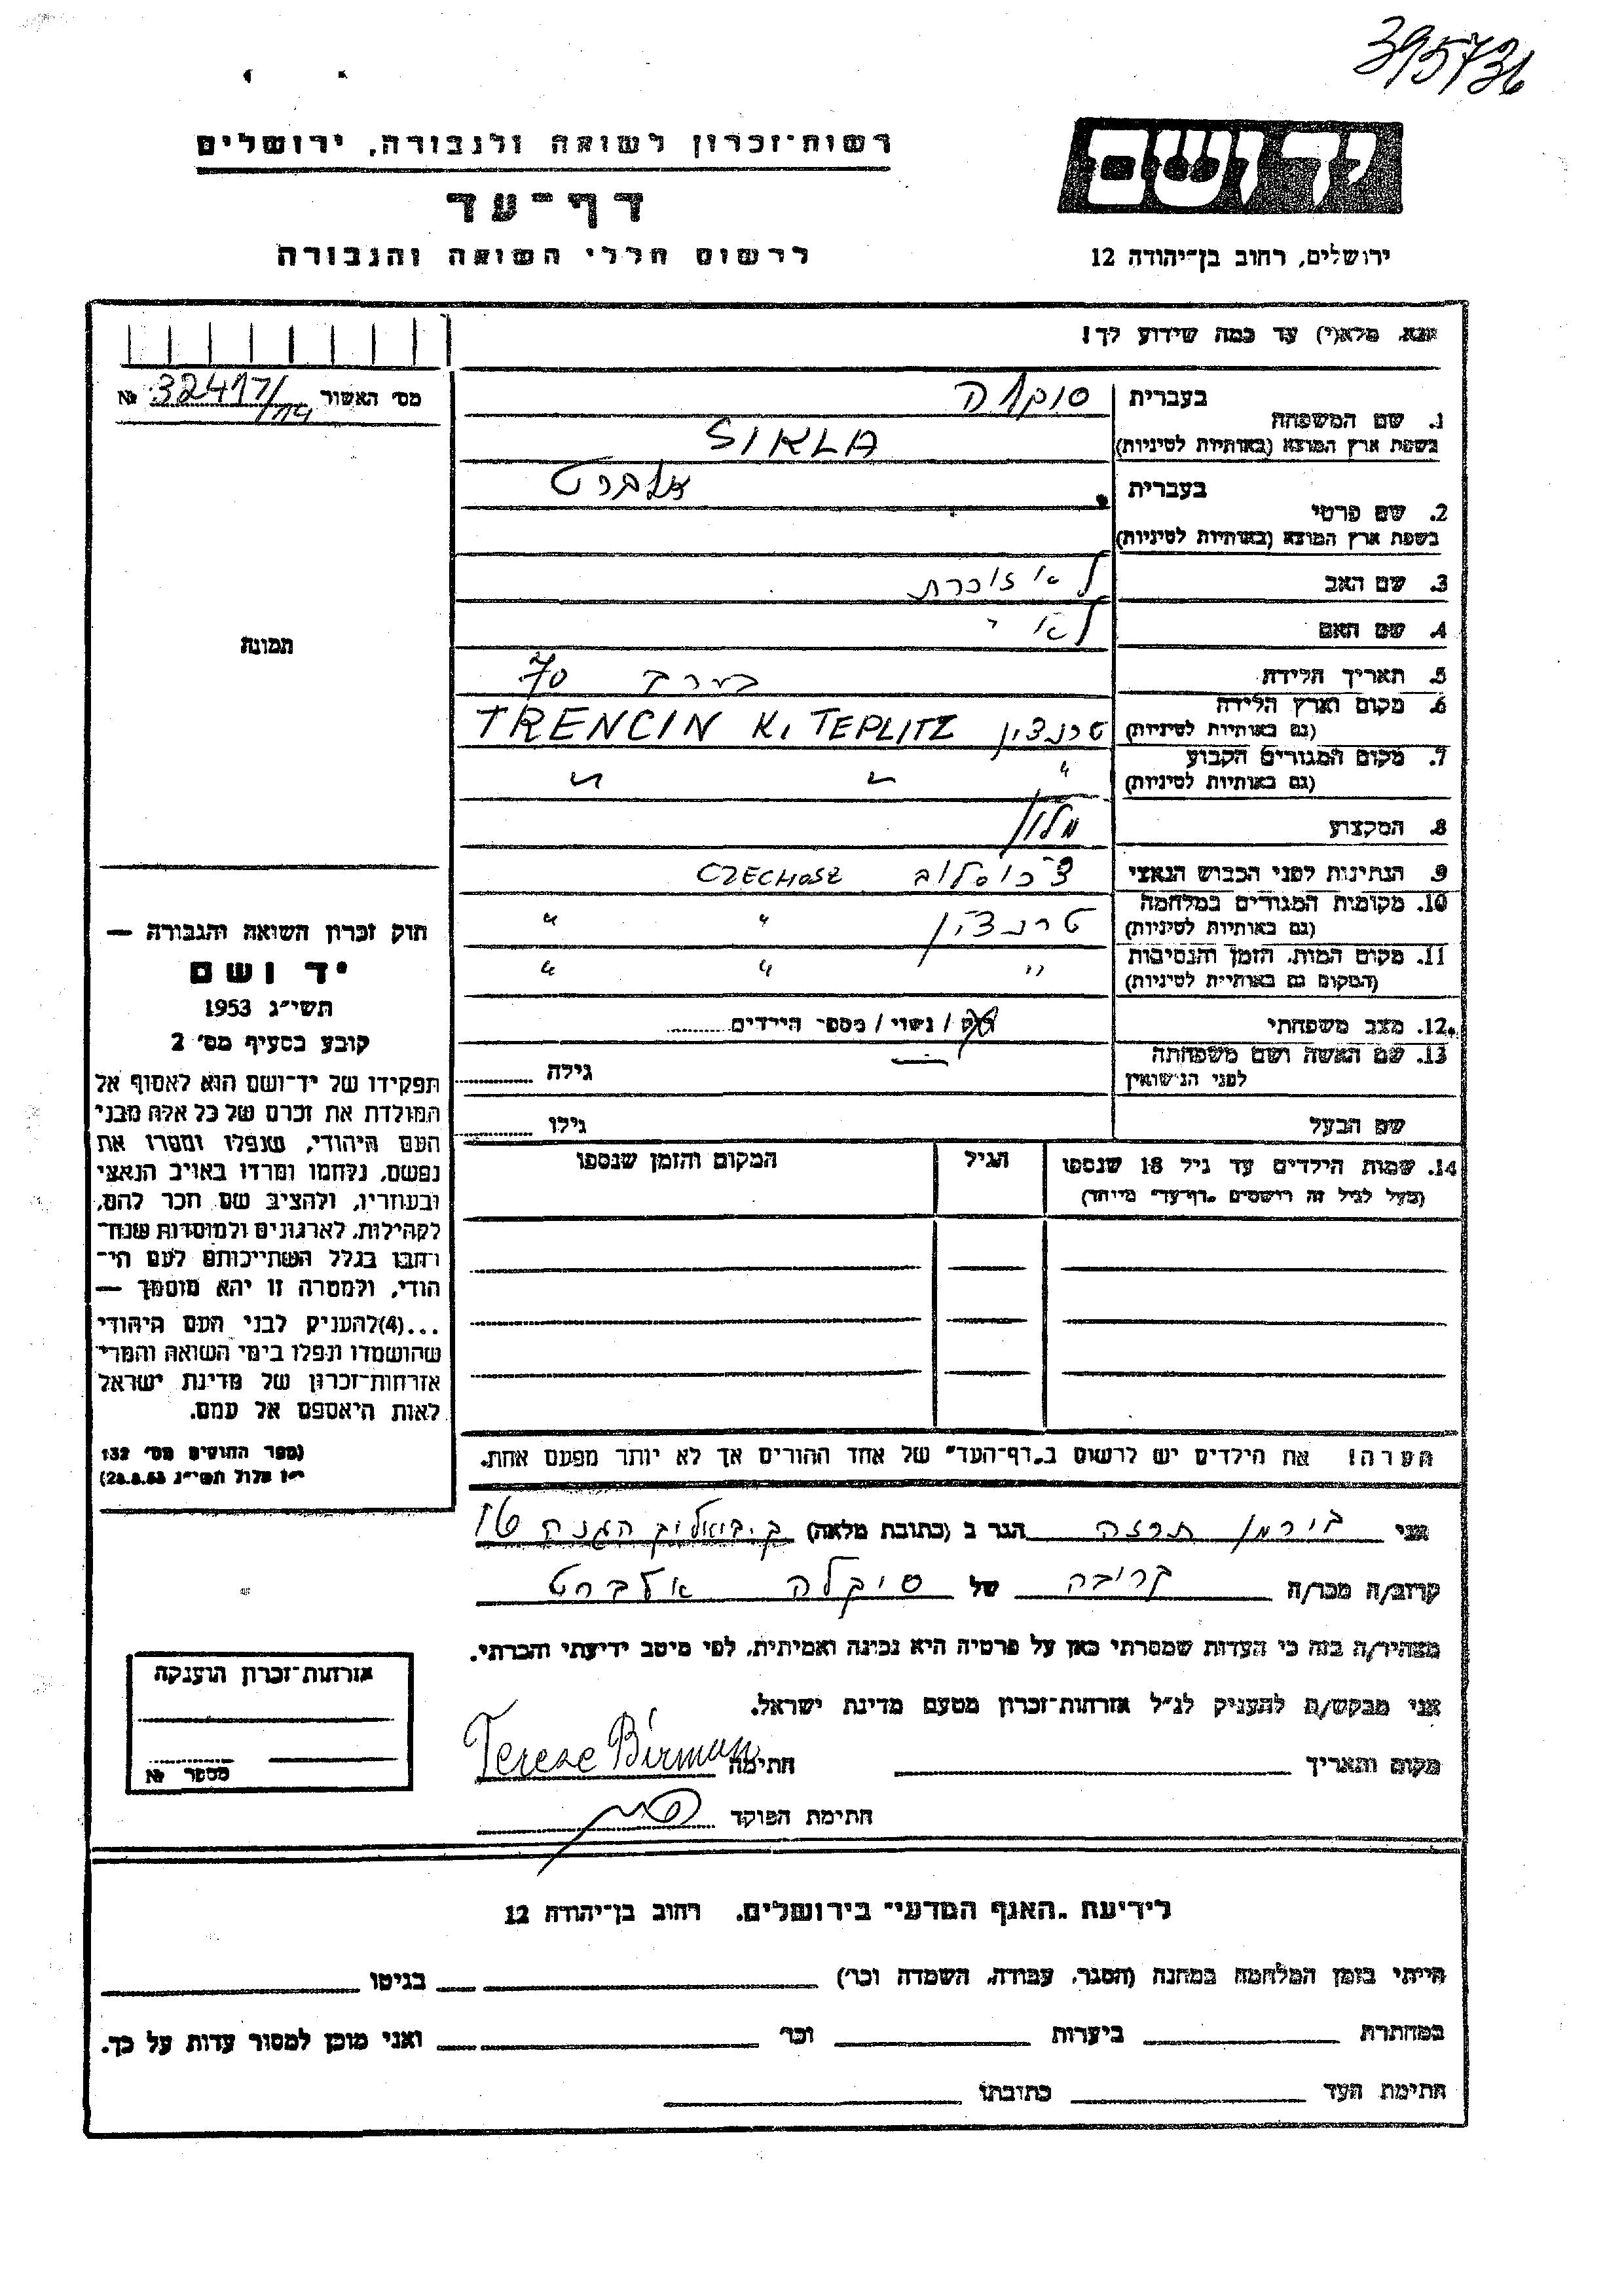 395736
רשות־זכרון לשואה ולגבורה, ירושלים
יד ושם
דף־עד
לרשום חללי השואה והגבורה
ירושלים, רחוב בן־יהודה 12
נא מלא(י) עד כמה שידוע לך!
מס׳ האשור 32417/ №
1. שם המשפחה
בעברית
בשפת ארץ המוצא (באותיות לטיניות)
SIKLA
2. שם פרטי
בעברית אלברט
בשפת ארץ המוצא (באותיות לטיניות)
3. שם האב לא זוכרת
4. שם האם לא "
5. תאריך הלידה בערך 70
6. מקום וארץ הלידה
(גם באותיות לטיניות) טרנצין TRENCIN K. TEPLITZ
7. מקום המגורים הקבוע
(גם באותיות לטיניות) " " "
8. המקצוע מלון
9. הנתינות לפני הכבוש הנאצי צ'כוסלוב
10. מקומות המגורים במלחמה
(גם באותיות לטיניות) טרנצין " "
11. מקום המות, הזמן והנסיבות
(המקום גם באותיות לטיניות) " " "
12. מצב משפחתי רוק / נשוי / מספר הילדים
13. שם האשה ושם משפחתה
לפני הנישואין — גילה
שם הבעל גילו
14. שמות הילדים עד גיל 18 שנספו
(מעל לגיל זה רושמים "דף־עד" מיוחד)
הגיל
המקום והזמן שנספו
תמונה
חוק זכרון השואה והגבורה —
יד ושם
תשי״ג 1953
קובע בסעיף מס׳ 2
תפקידו של יד־ושם הוא לאסוף אל
המולדת את זכרם של כל אלה מבני
העם היהודי, שנפלו ומסרו את
נפשם, נלחמו ומרדו באויב הנאצי
ובעוזריו, ולהציב שם וזכר להם,
לקהילות, לארגונים ולמוסדות שנח־
רחבו בגלל השתייכותם לעם הי־
הודי, ולמטרה זו יהא מוסמך —
...(4)להעניק לבני העם היהודי
שהושמדו ונפלו בימי השואה והמרי
אזרחות־זכרון של מדינת ישראל
לאות היאספם אל עמם.
(ספר החוקים מס׳ 132
י״ז אלול תשי״ג 28.8.53)
הערה! את הילדים יש לרשום ב"דף־העד" של אחד ההורים אך לא יותר מפעם אחת.
אני בירמן תרזה הגר ב (כתובת מלאה) ק. ביאליק
קרוב/ה מכר/ה קרובה של סיקלה אלברט
מצהיר/ה בזה כי העדות שמסרתי כאן על פרטיה היא נכונה ואמיתית, לפי מיטב ידיעתי והכרתי.
אני מבקש/ת להעניק לנ״ל אזרחות־זכרון מטעם מדינת ישראל.
מקום ותאריך חתימה Tereze Birman
חתימת הפוקד
אזרחות־זכרון הוענקה
מספר №
לידיעת "האגף המדעי" בירושלים, רחוב בן־יהודה 12
הייתי בזמן המלחמה במחנה (הסגר, עבודה, השמדה וכו׳) בגיטו
במחתרת ביערות וכו׳ ואני מוכן למסור עדות על כך.
חתימת העד כתובתו